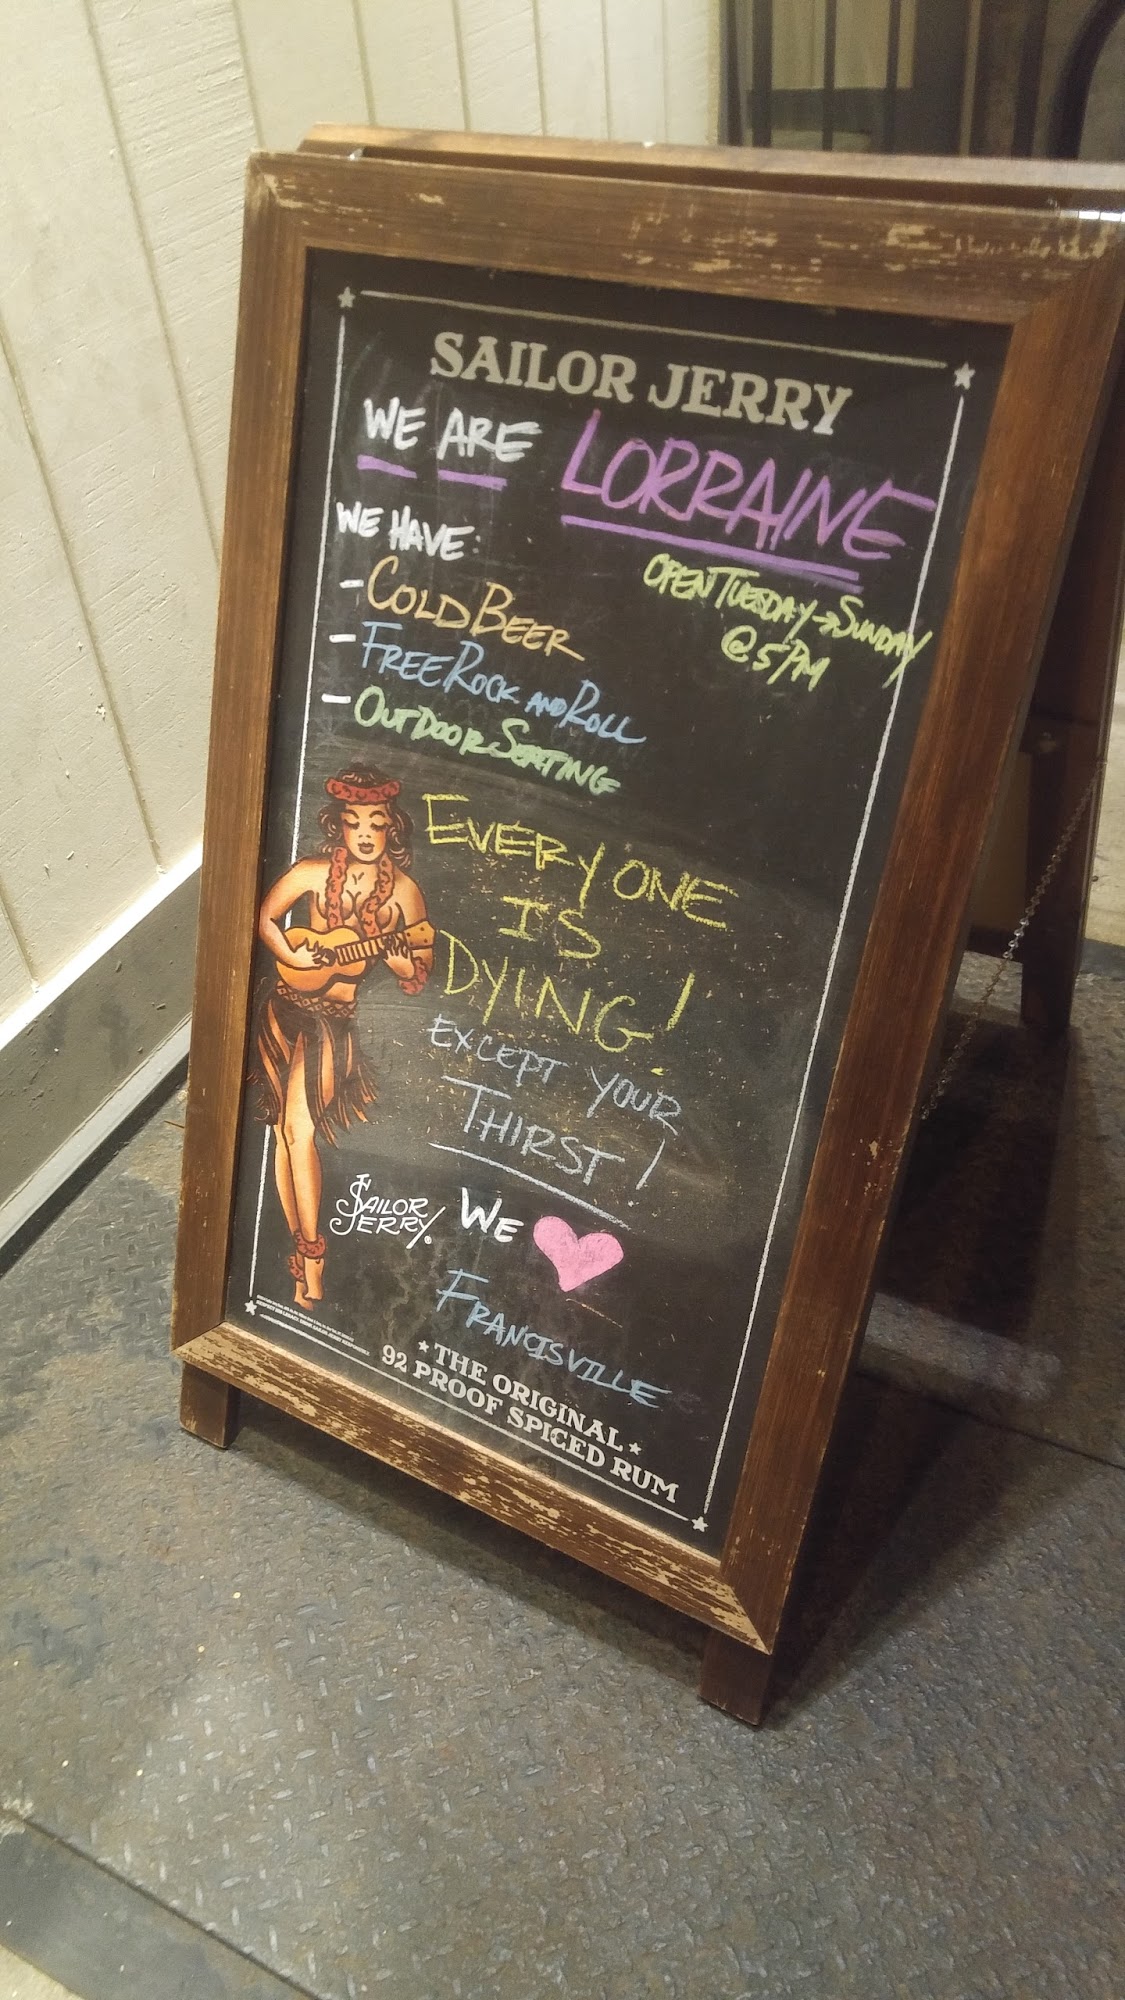 SAILOR JERRY
WE ARE LORRAINE
OPEN TUESDAY → SUNDAY
@ 5 PM
WE HAVE:
- COLD BEER
- FREE ROCK AND ROLL
- OUTDOOR SEATING
EVERYONE
IS
DYING!
EXCEPT YOUR
THIRST!
SAILOR
JERRY®
WE ♥
FRANCISVILLE
★THE ORIGINAL★
92 PROOF SPICED RUM